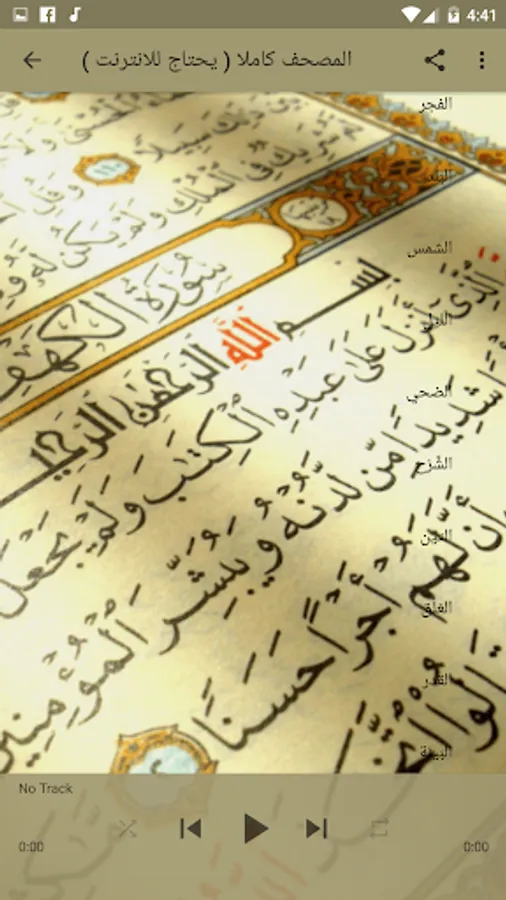 4:41
المصحف كاملا ( يحتاج للانترنت )
الفجر
البلد
الشمس
الليل
الضحي
الشرح
التين
العلق
القدر
البينة
سُورَةُ الْكَهْفِ
بِسْمِ اللَّهِ الرَّحْمَنِ الرَّحِيمِ
الَّذِي أَنْزَلَ عَلَىٰ عَبْدِهِ الْكِتَٰبَ وَلَمْ يَجْعَلْ
شَدِيدًا مِّن لَّدُنْهُ وَيُبَشِّرَ الْمُؤْمِنِينَ
أَنَّ لَهُمْ أَجْرًا حَسَنًا
No Track
0:00
0:00